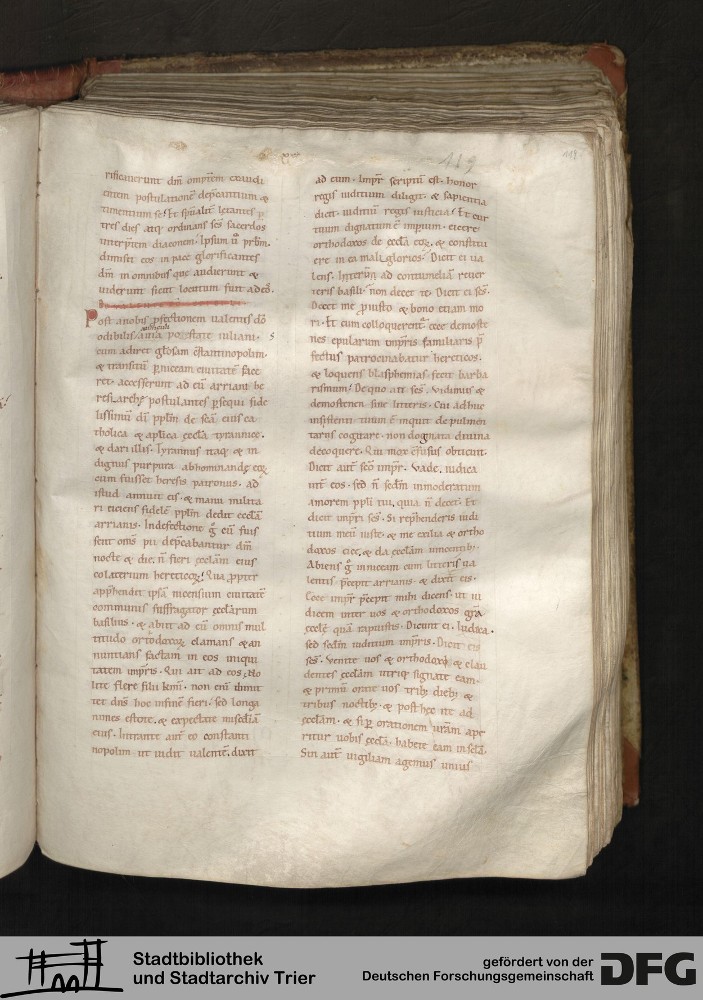 119
118
rificaverunt dm̄ omnem exaudi
entem postulationē dep̄cantium &
timentium se. Et sp̄ualit̄ letantes p̄
tres dies atq; ordinans scs̄ sacerdos
interp̄tem diaconem. Ipsum ū prb̄m.
dimisit eos in pace glorificantes
dm̄ in omnibus que audierunt &
viderunt sicut locutum fuit ad eos.
Post a nobis p̄fectionem valentis dō
odibilis avunculi po state iuliani.
cum adiret glosam c̄stantinopolim.
& transitū p̄ niceam civitatē face
ret. accesserunt ad eū arriani he
resiarchę postulantes p̄sequi fide
lissimū dī pplm̄ de scā eius ca
tholica & aplica ęccla tyrannice.
& dari illis. Tyrannus itaq; & in
dignus purpura abhominandę eoꝝ
cum fuisset heresis patronus. ad
istud annuit eis. & manu milita
ri eiciens fidelē pplm̄ dedit ęcclām
arrianis. In defectione g̊ cū fuis
sent om̄s pii dep̄cabantur dm̄
nocte & die. n̄ fieri ęcclam eius
colaterium hereticoꝝ. Qua p̄pter
app̄hendit ipsā nicensium civitatē
communis suffragator ęcclarum
basilius. & abiit ad eū omnis mul
titudo ortodoxoꝝ clamans & an
nuntians factam in eos iniqui
tatem impr̄is. Qui ait ad eos; No
lite flere filii kmī. non enī dimit
tet dns̄ hoc in finē fieri. sed longa
nimes estote. & expectate mis̄cdiā
eius. Intrante aut̄ eo constanti
nopolim ut vidit valentē. dixit
ad eum. Impr̄ scriptū est. honor
regis iuditium diligit. & sapientia
dicit. iuditiū regis iusticia. Et cur
tuum dignatum ē impium. eicere
orthodoxos de ęccla eoꝝ. & constitu
ere in ea mali glorios. Dicit ei va
lens. Iterum ad contumeliā rever
teris basili. non decet te. Dicit ei scs̄.
Decet me p̄ iusto & bono etiam mo
ri. Et cum colloquerent᷑ ecce demoste
nes epularum impr̄is familiaris p̄
fectus patrocinabatur hereticos.
& loquens blasphemias. fecit barba
rismum. De quo ait scs̄. vidimus &
demostenen sine litteris. Cui adhuc
insistenti. tuum ē inquit de pulmen
tariis cogitare. non dogmata divina
decoquere. Qui mox c̄fusus obticuit.
Dicit aut̄ scō impr̄. vade. iudica
int̄ eos. sed n̄ scdm̄ inmoderatum
amorem ppli tui. qua n̄ decet. Et
dicit impr̄i scs̄. Si rep̄henderis iudi
tium meū iuste. & me exilia & ortho
doxos eice. & da ęcclam vincentib;
Abiens g̊ in niceam cum litteris va
lentis. p̄cepit arrianis. & dixit eis.
Ecce impr̄ p̄cepit mihi dicens. ut iu
dicem inter vos & orthodoxos grā
ęcclę quā rapuistis. Dicunt ei. Iudica.
sed scdm̄ iuditium impr̄is. Dicit eis
scs̄. venite vos & orthodoxi & clau
dentes ęcclam utriq; signate eam.
& primū orate vos trib; dieb; &
tribus noctib; & post hęc ite ad
ęcclam. & si p̄ orationem vr̄am ape
ritur vobis ęccla. habete eam in scla.
Sin aut̄ vigiliam agemus unius
Stadtbibliothek
und Stadtarchiv Trier
gefördert von der
Deutschen Forschungsgemeinschaft
DFG